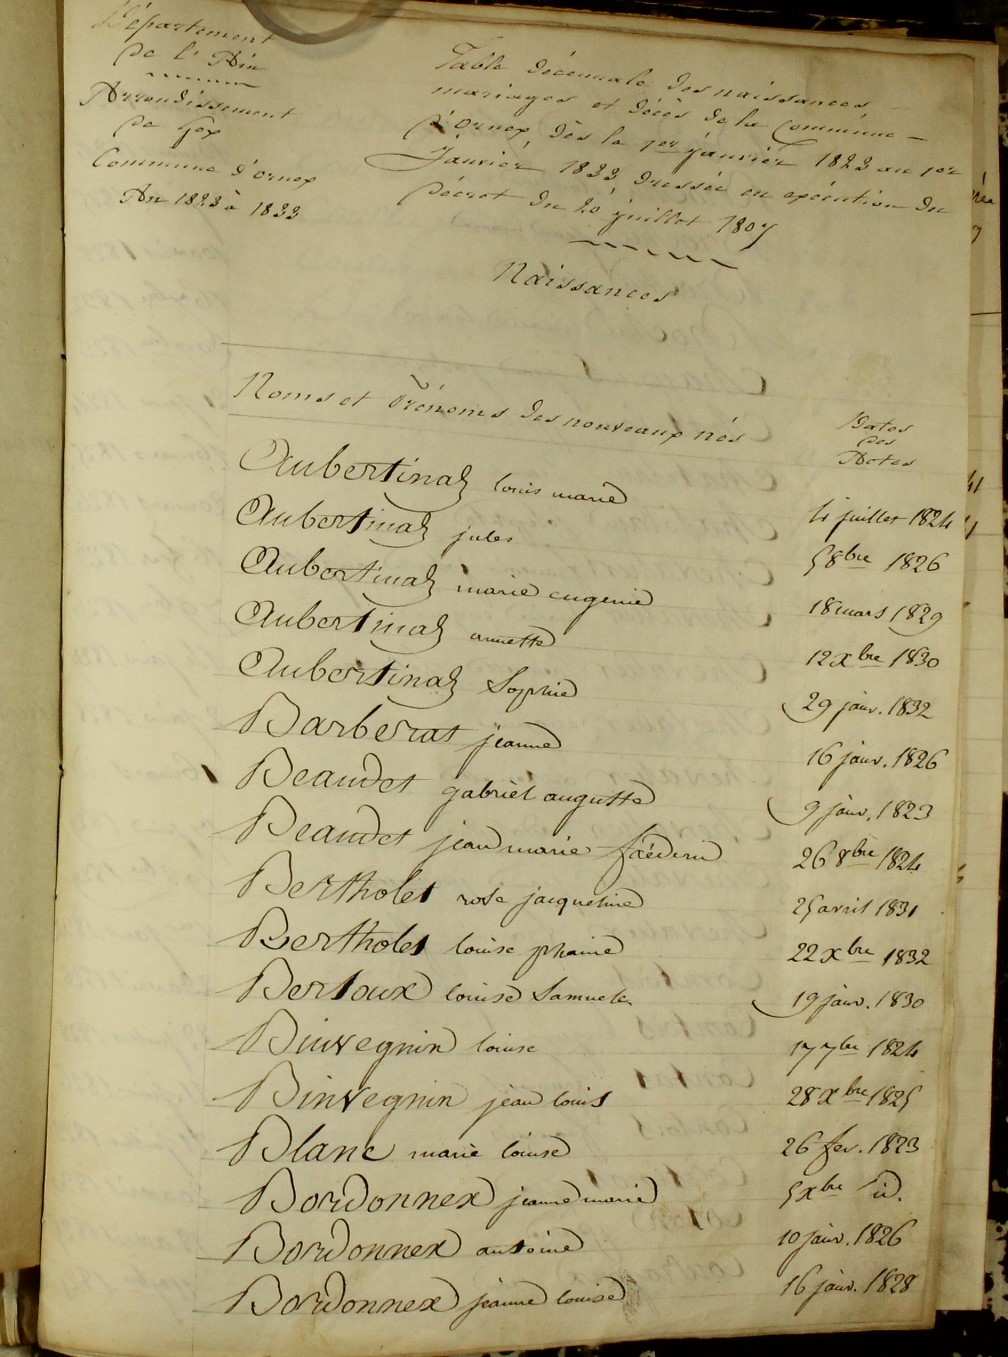 Département
de l'Ain
Arrondissement
de Gex
Commune d'ornex
An 1823 à 1833
Table décennale des naissances
mariages et décès de la Commune
d'Ornex, dès le 1er janvier 1823 au 1er
Janvier 1833, dressée en exécution du
Décret du 20 juillet 1807
Naissances
Noms et Prénoms des nouveaux nés Dates des Actes
Aubertinaz louis marie 4 juillet 1824
Aubertinaz jules 5 8bre 1826
Aubertinaz marie eugenie 18 mars 1829
Aubertinaz annette 12 Xbre 1830
Aubertinaz Sophie 29 janv. 1832
Barberat jeanne 16 janv. 1826
Beaudet gabriel auguste 9 janv. 1823
Beaudet jean marie 26 8bre 1824
Bertholet rose jaqueline 25 avril 1831
Bertholet louise phanie 22 Xbre 1832
Bertoux louise Samuele 19 janv. 1830
Binvegnin louise 17 7bre 1824
Binvegnin jean louis 28 Xbre 1825
Blanc marie louise 26 fev. 1823
Bordonnex jeanne marie 5 Xbre id.
Bordonnex antoine 10 janv. 1826
Bordonnex jeanne louise 16 janv. 1828